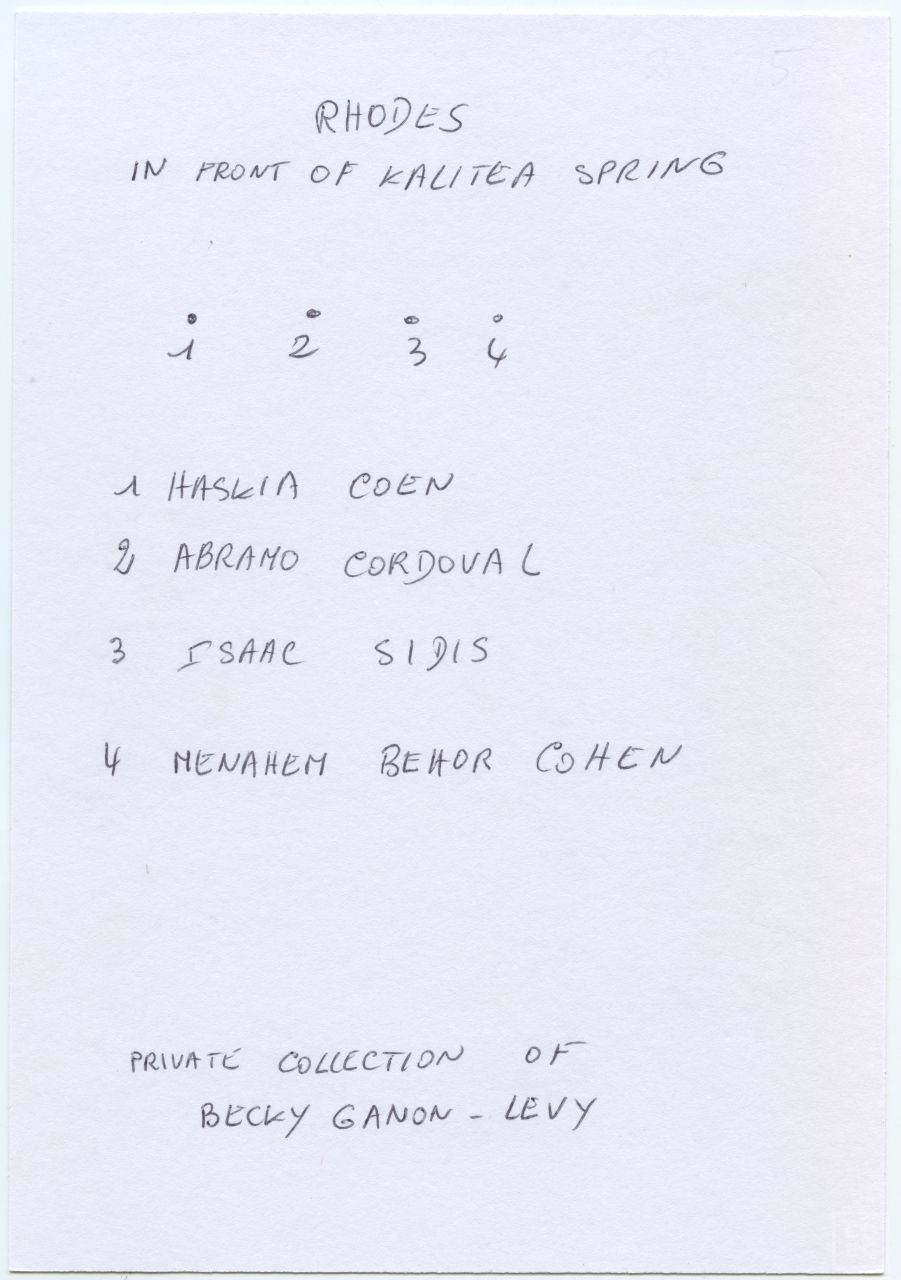 RHODES
IN FRONT OF KALITEA SPRING
1 2 3 4
1 HASKIA COEN
2 ABRAMO CORDOVAL
3 ISAAC SIDIS
4 MENAHEM BEHOR COHEN
PRIVATE COLLECTION OF
BECKY GANON - LEVY